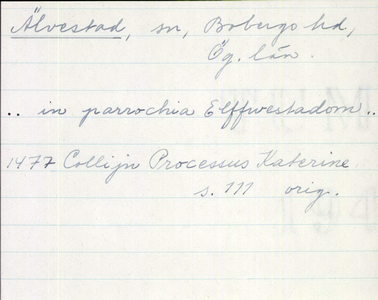 Älvestad, sn, Bobergs hd,
Ög. län.
.. in parrochia Elffwestadom ..
1477 Collijn Processus Katerine
s. 111 orig.